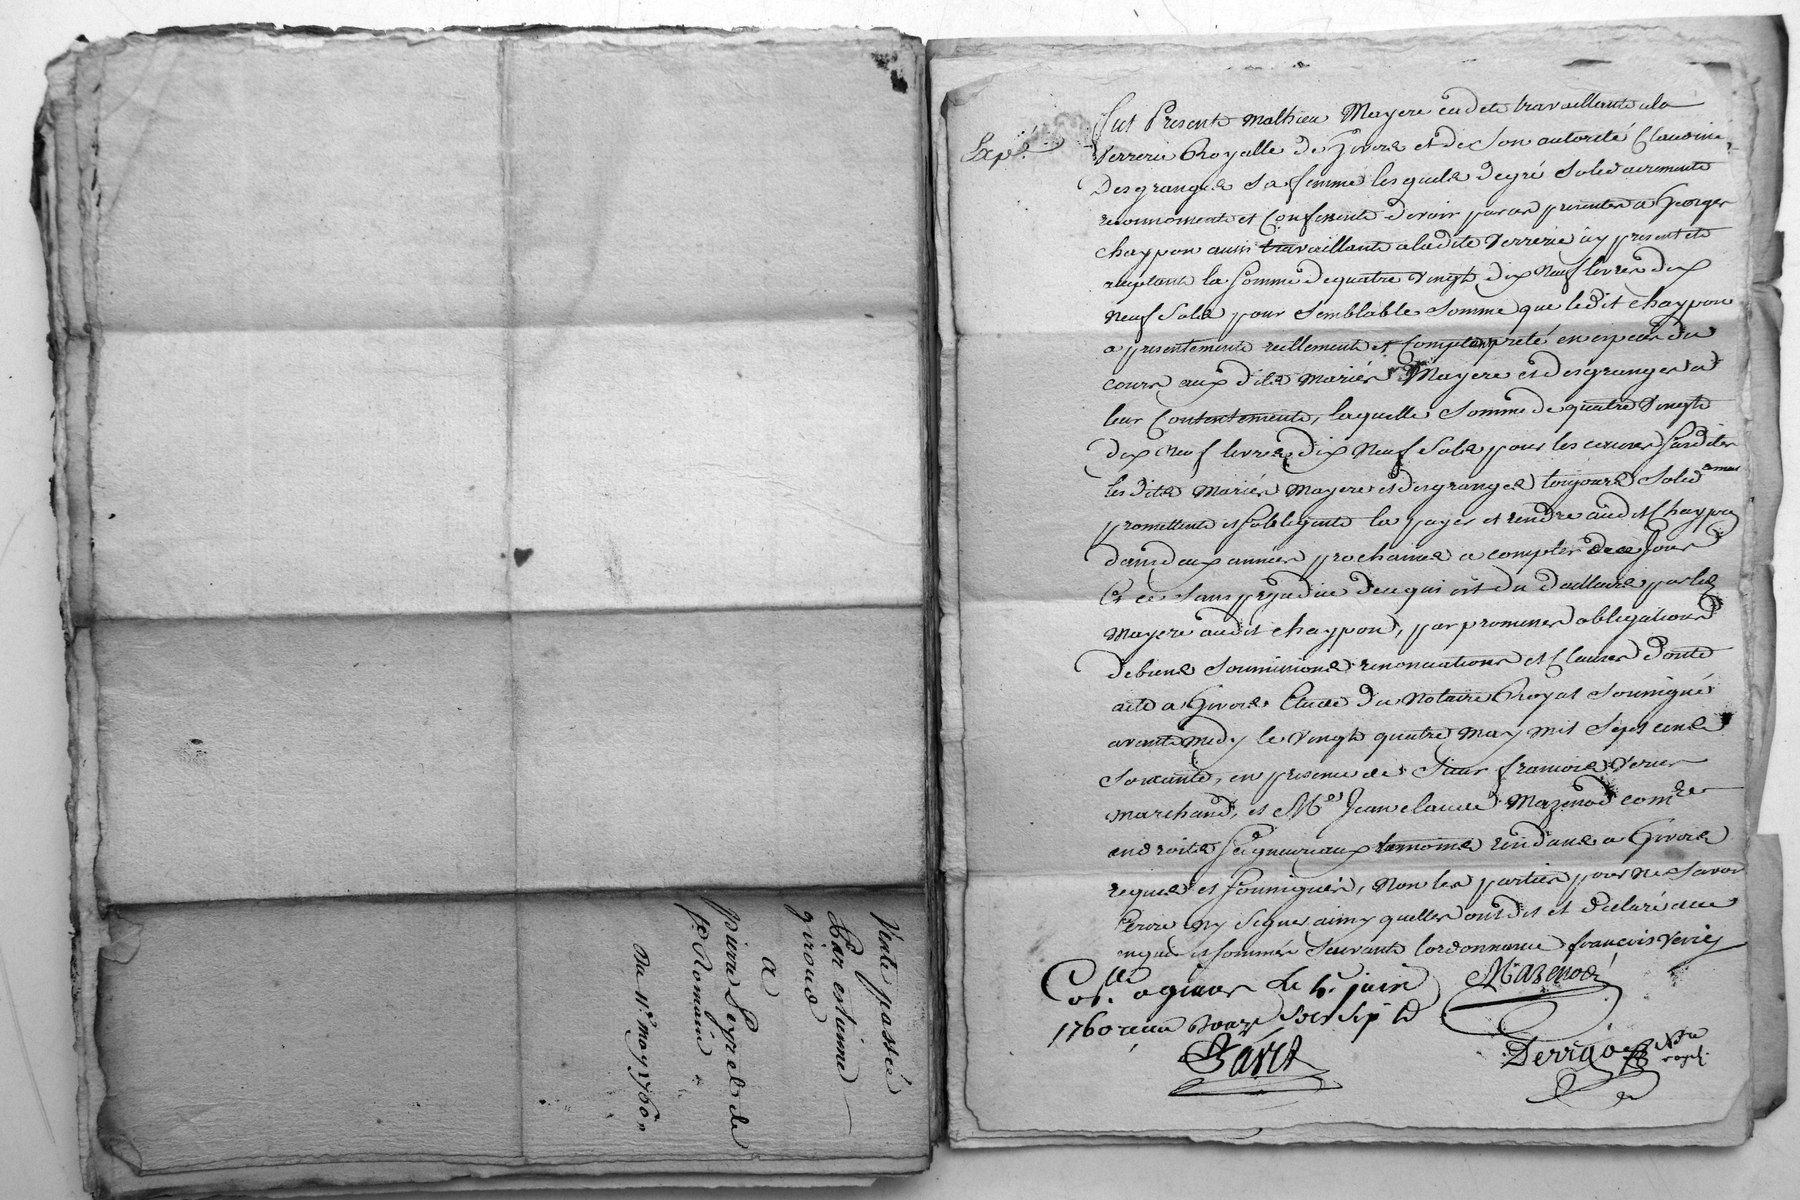 Vente passée
Par estienne
giroud
a
pierre Peyret de
st Romain
Du 11e. may 1760
Expé.
Fut Present Mathieu Mayere cadet travaillant ala
Verrerie Royalle de Givors et de Son autorité Claudine
Desgranges Sa femme lesquels de gré Solidairement
reconnoissent et Confessent devoir par ces presentes a George
chaypon aussi travaillant a ladite Verrerie icy present et
aceptant la Somme de quatre Vingt dix Neuf livres dix
Neuf Sols pour Semblable Somme que ledit chaypon
a presentement reellement et Comptant preté en especes du
cours aux dits Mariés Mayere et desgranges a
leur Contentement, laquelle Somme de quatre Vingt
dix Neuf livres dix Neuf Sols pour les causes Susdites
lesdits Mariés Mayere et desgranges toujours Solidairement
promettent et Sobligent la payer et rendre audit Chaypon
dans deux années prochaines a compter de ce Jour
Et ce Sans prejudice de ce qui est du dailleurs par led
Mayere audit chaypon, par promesses obligations
de biens Soumissions renonciations et Clauses dont
acte a Givors Etude du Notaire Royal Soussigné
avant Midy le Vingt quatre May mil Sept cens
Soixante, en presence de Sieur francois Verier
marchand, et Me Jean claude Mazenod comre
en droits Seigneuriaux temoins residans a Givors
requis et Soussignés, Non les parties pour ne Savoir
Ecrire Ny Signer ainsy quelles ont dit et declaré de ce
enquis et Sommés Suivant lordonnance francois Verier
Mazenod
Collé a givors le 5e juin
1760 reçu douze sols six d
Bavet
Derrigo Nre
royal